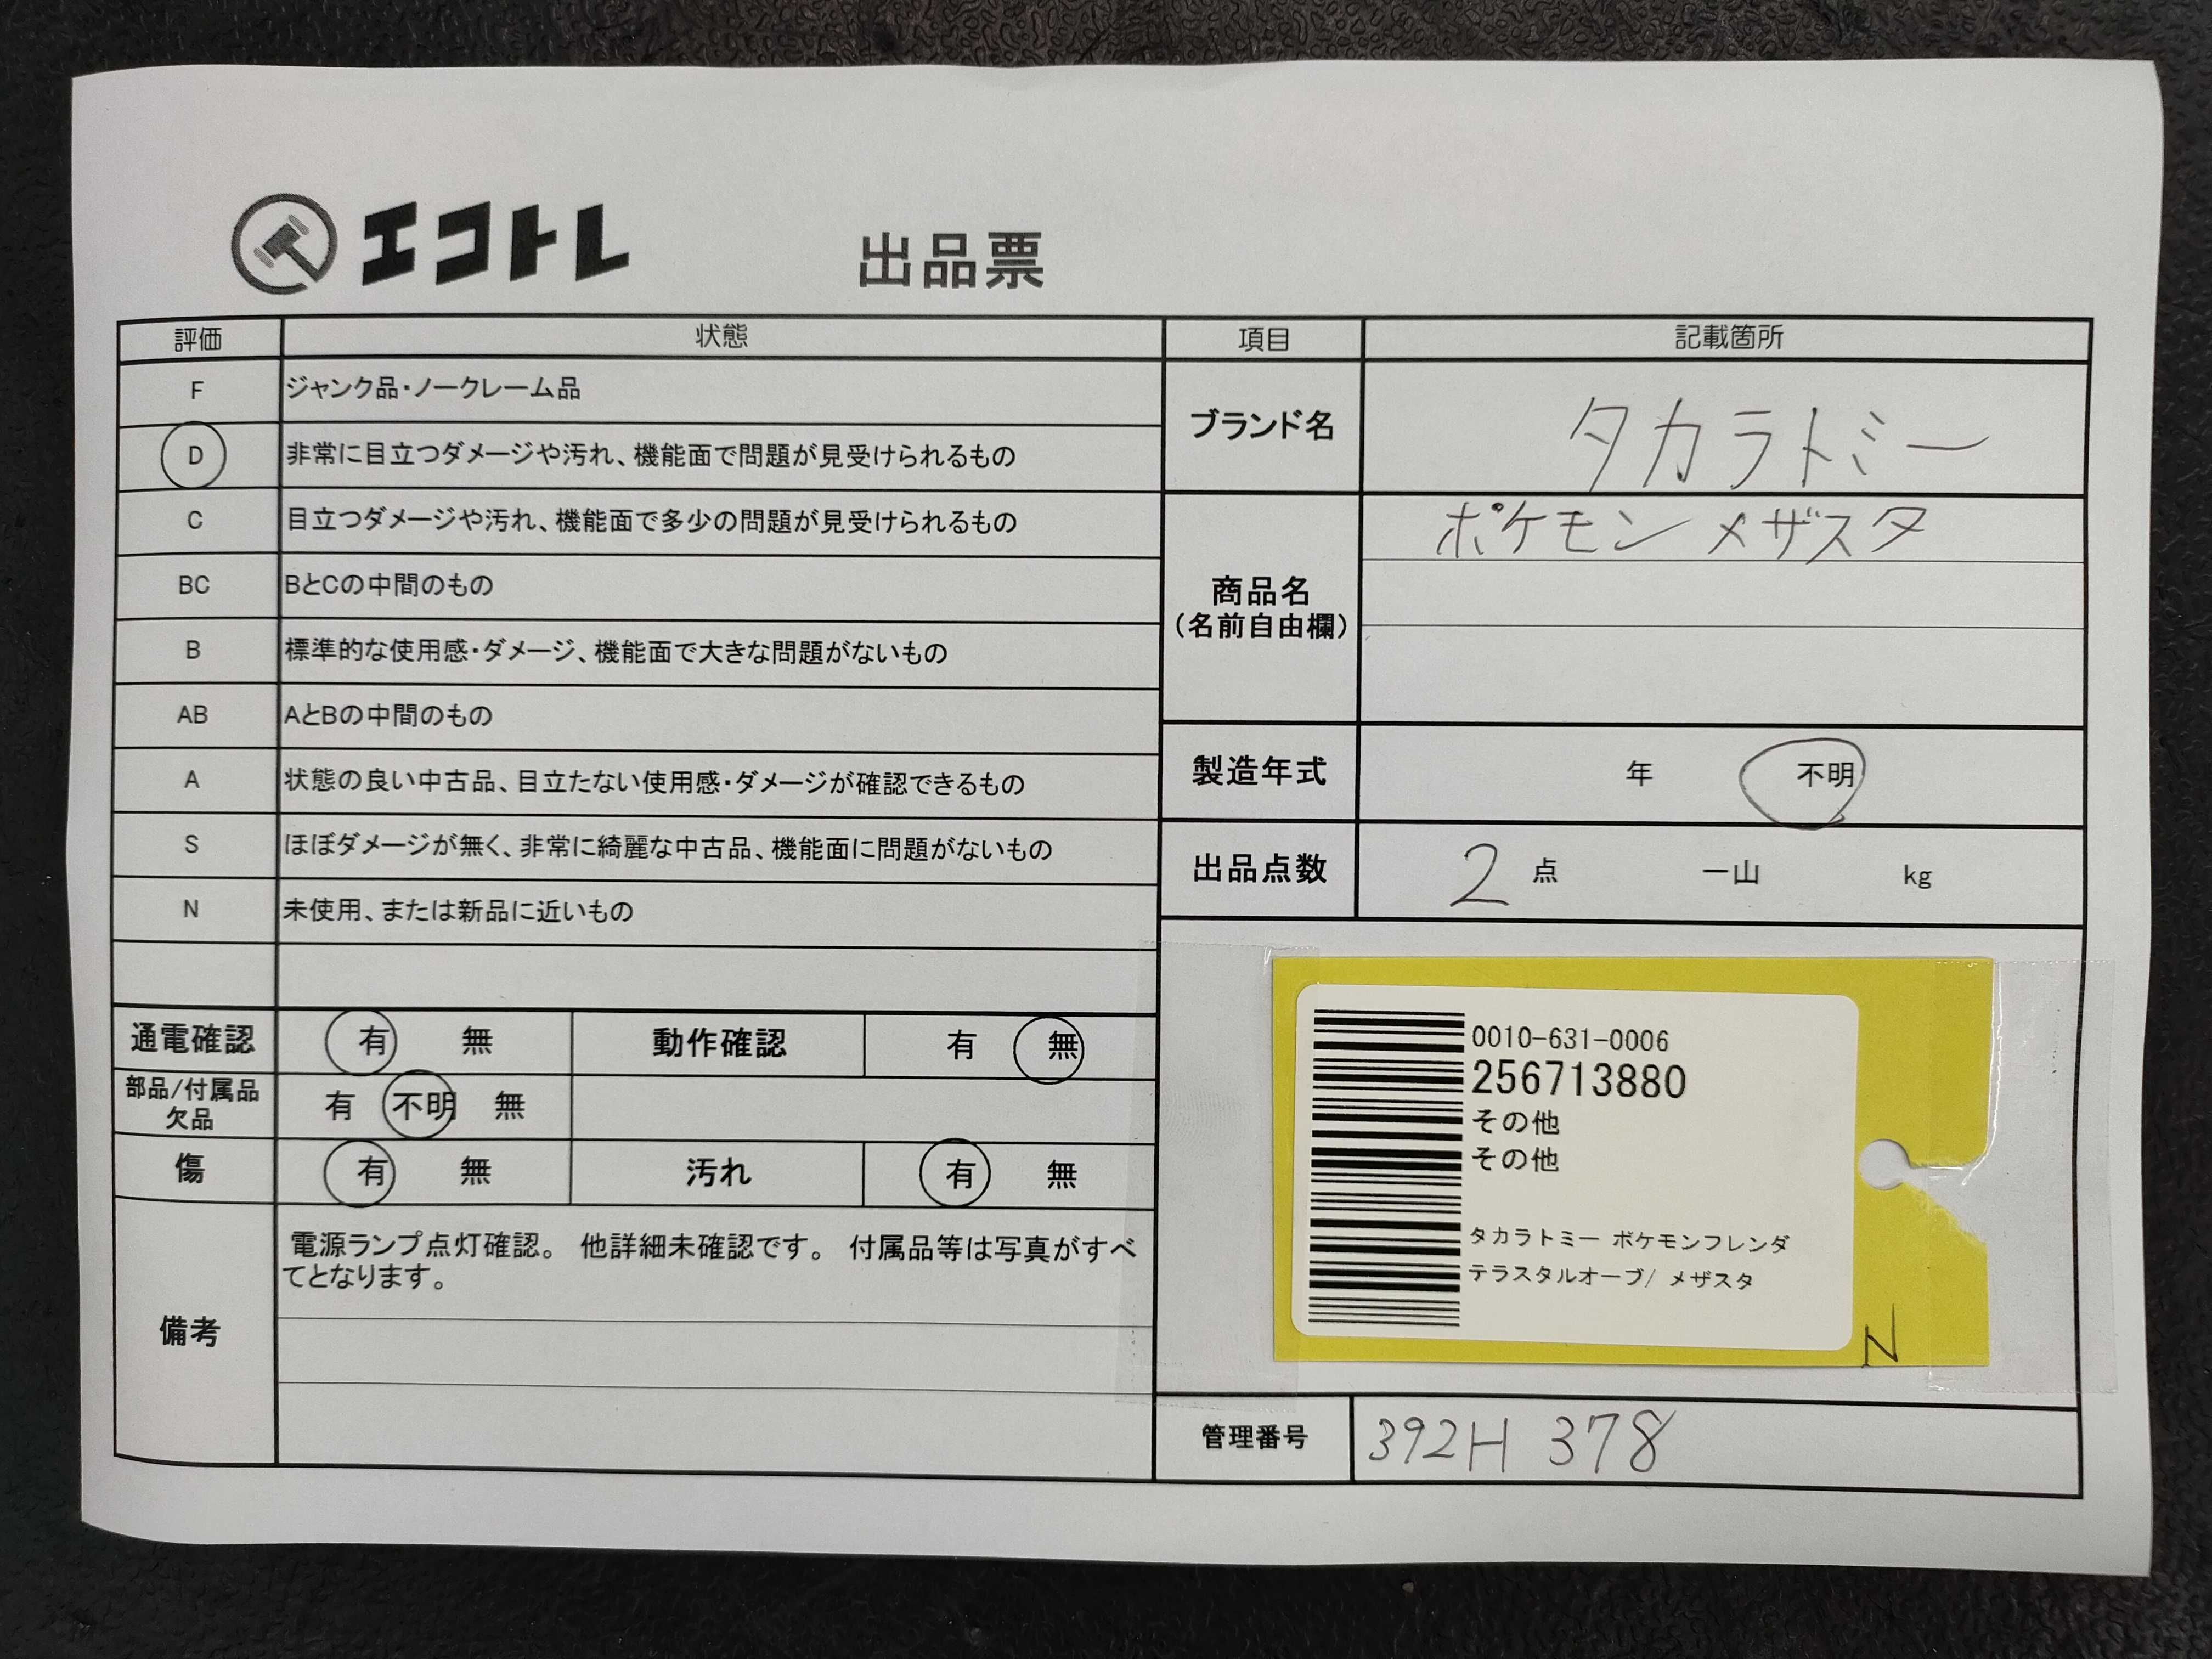 エコトレ
出品票
評価 状態
F ジャンク品・ノークレーム品
D 非常に目立つダメージや汚れ、機能面で問題が見受けられるもの
C 目立つダメージや汚れ、機能面で多少の問題が見受けられるもの
BC BとCの中間のもの
B 標準的な使用感・ダメージ、機能面で大きな問題がないもの
AB AとBの中間のもの
A 状態の良い中古品、目立たない使用感・ダメージが確認できるもの
S ほぼダメージが無く、非常に綺麗な中古品、機能面に問題がないもの
N 未使用、または新品に近いもの
通電確認 有 無 動作確認 有 無
部品/付属品
欠品
有 不明 無
傷 有 無 汚れ 有 無
備考
電源ランプ点灯確認。 他詳細未確認です。 付属品等は写真がすべ
てとなります。
項目 記載箇所
ブランド名 タカラトミー
商品名
(名前自由欄)
ポケモン メザスタ
製造年式 年 不明
出品点数 2 点 一山 kg
0010-631-0006
256713880
その他
その他
タカラトミー ポケモンフレンダ
テラスタルオーブ/ メザスタ
N
管理番号 392H 378